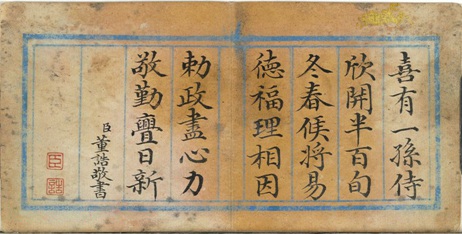 喜有一孫侍
欣開半百旬
冬春候將易
德福理相因
勅政盡心力
敬勤亹日新
臣董誥敬書
臣
誥